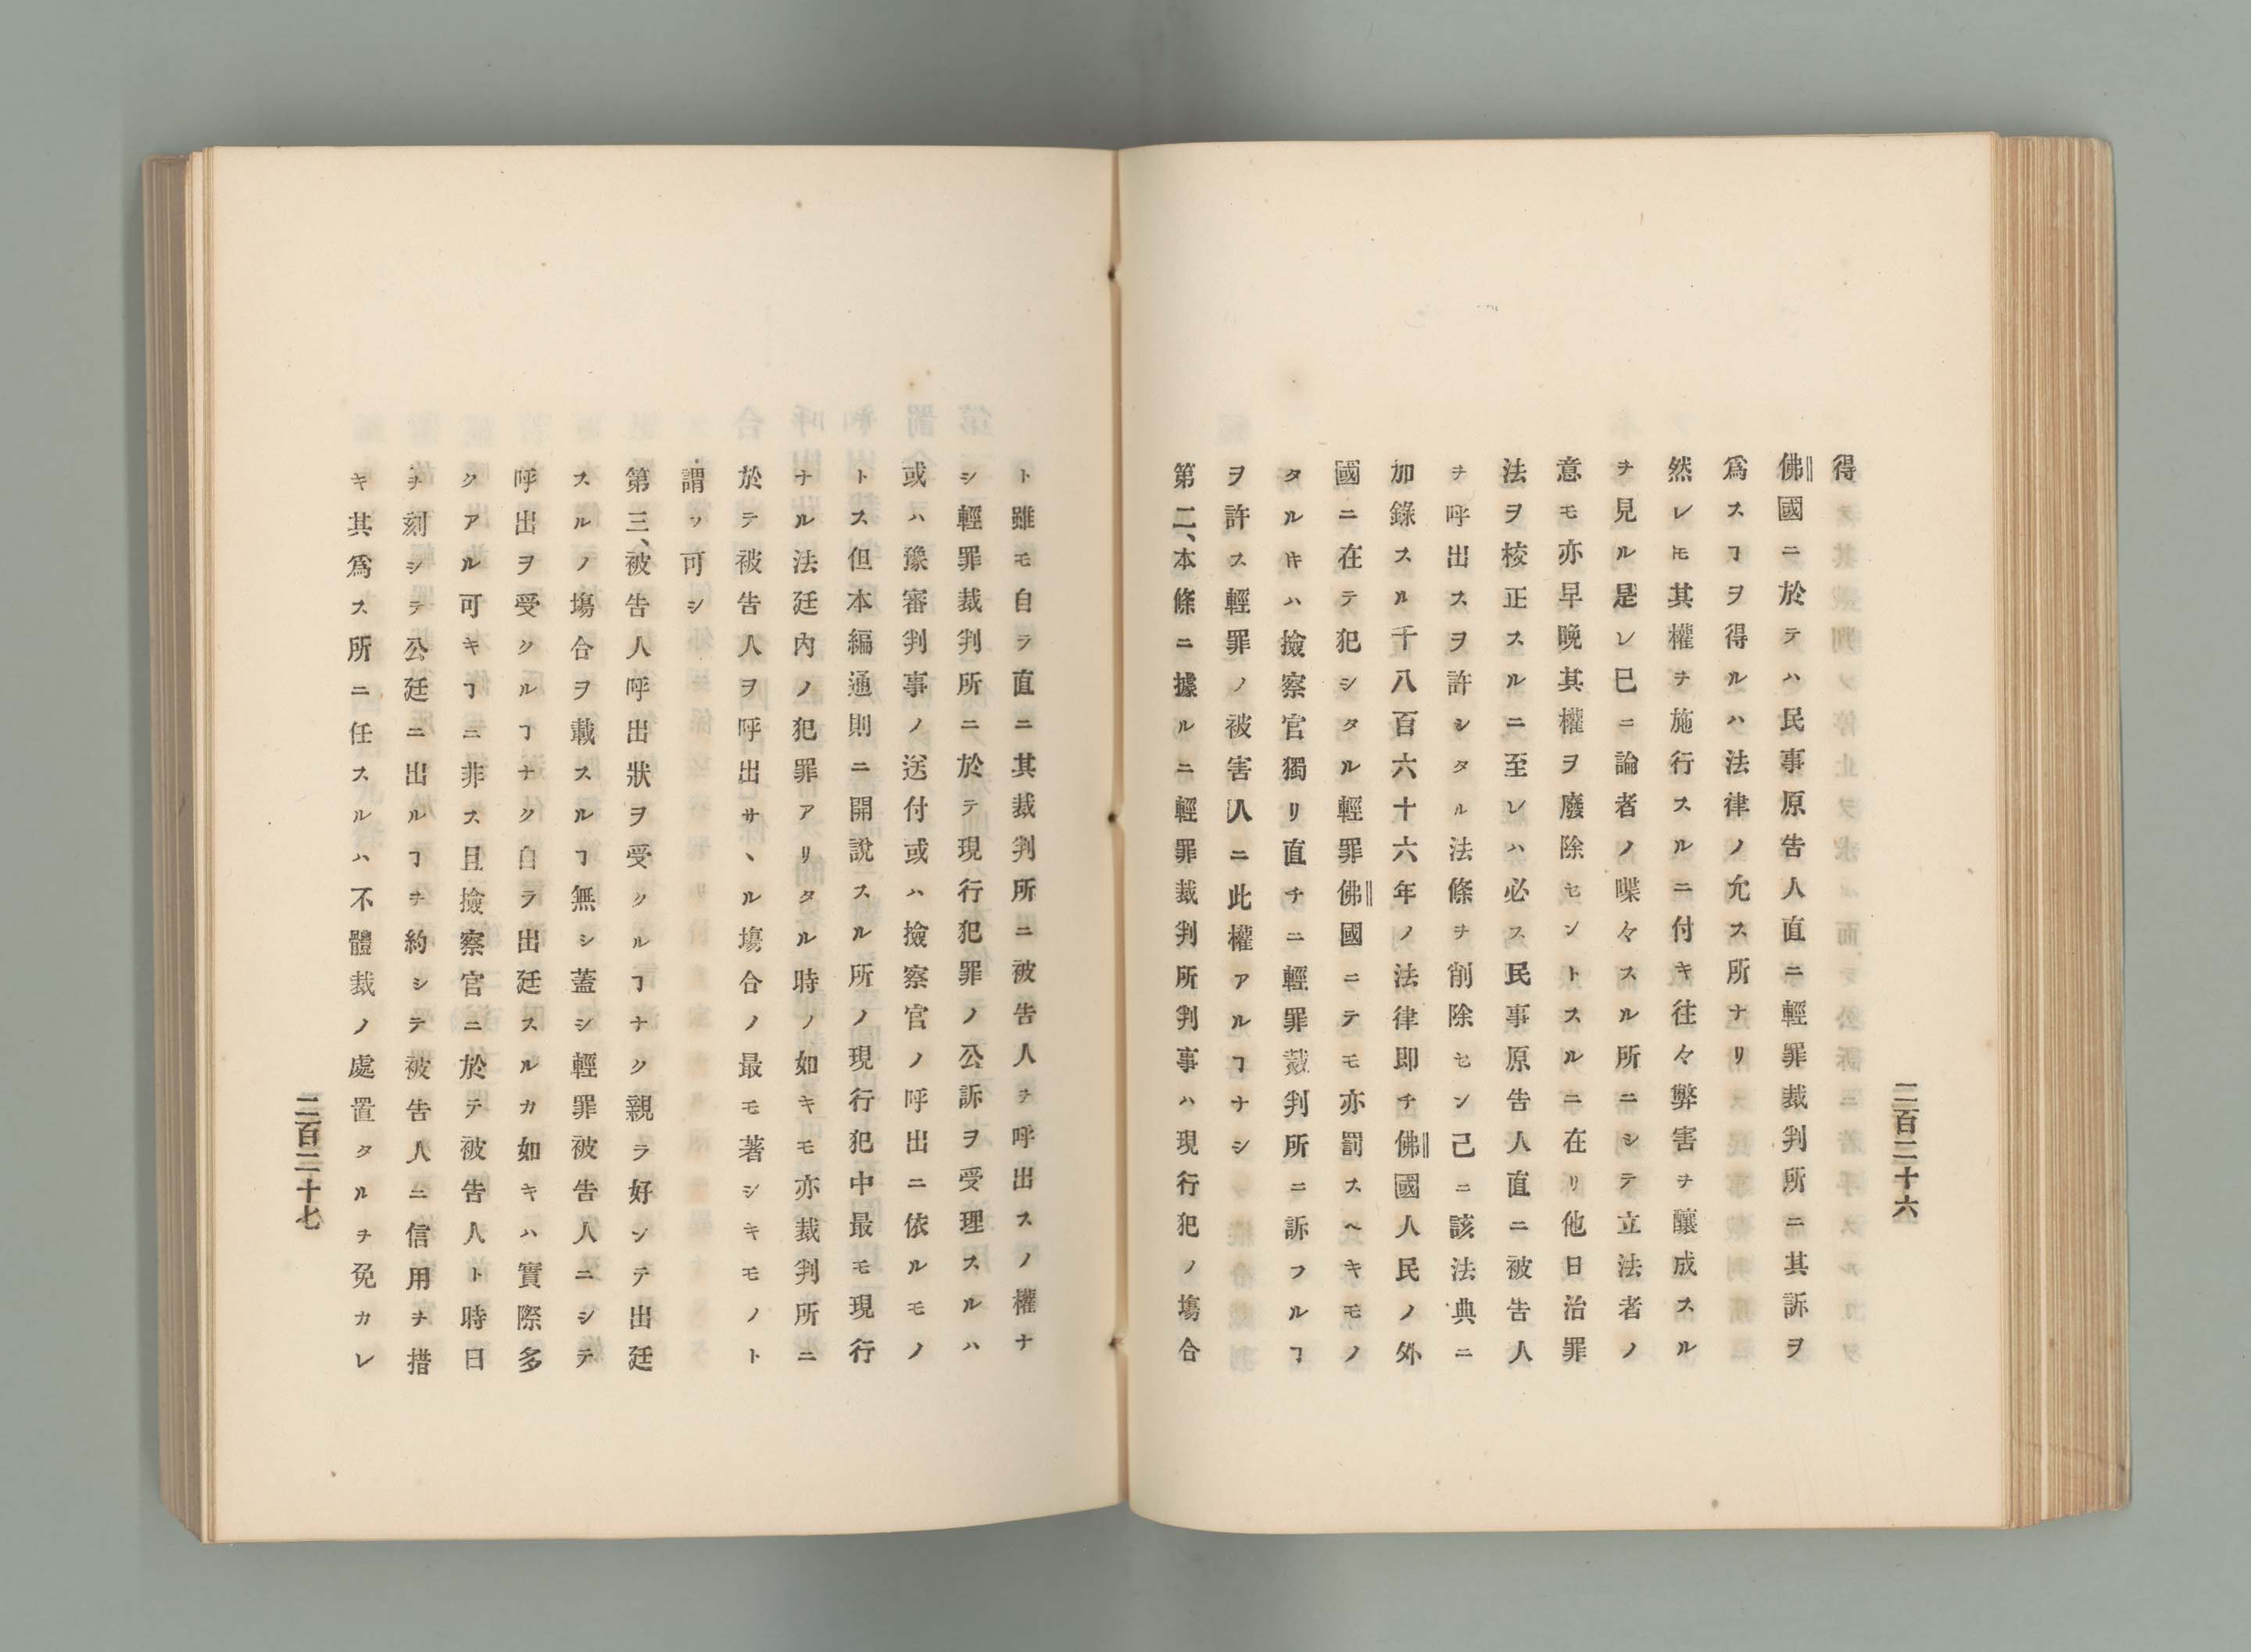 二百二十六
得
佛國ニ於テハ民事原告人直ニ輕罪裁判所ニ其訴ヲ
爲スヿヲ得ルハ法律ノ允ス所ナリ
然レ𪜈其權ヲ施行スルニ付キ往々弊害ヲ釀成スル
ヲ見ル是レ已ニ論者ノ喋々スル所ニシテ立法者ノ
意モ亦早晩其權ヲ廢除セントスルニ在リ他日治罪
法ヲ校正スルニ至レハ必ス民事原告人直ニ被告人
ヲ呼出スヲ許シタル法條ヲ削除セン已ニ該法典ニ
加錄スル千八百六十六年ノ法律即チ佛國人民ノ外
國ニ在テ犯シタル輕罪佛國ニテモ亦罰スヘキモノ
タルキハ撿察官獨リ直チニ輕罪裁判所ニ訴フルヿ
ヲ許ス輕罪ノ被害人ニ此權アルヿナシ
第二、本條ニ據ルニ輕罪裁判所判事ハ現行犯ノ塲合
ト雖モ自ラ直ニ其裁判所ニ被告人ヲ呼出スノ權ナ
シ輕罪裁判所ニ於テ現行犯罪ノ公訴ヲ受理スルハ
或ハ豫審判事ノ送付或ハ撿察官ノ呼出ニ依ルモノ
トス但本編通則ニ開說スル所ノ現行犯中最モ現行
ナル法廷內ノ犯罪アリタル時ノ如キモ亦裁判所ニ
於テ被告人ヲ呼出サヽル塲合ノ最モ著シキモノト
謂ツ可シ
第三、被告人呼出狀ヲ受クルヿナク親ラ好シテ出廷
スルノ塲合ヲ載スルヿ無シ蓋シ輕罪被告人ニシテ
呼出ヲ受クルヿナク自ラ出廷スルカ如キハ實際多
クアル可キヿニ非ス且撿察官ニ於テ被告人ト時日
ヲ刻シテ公廷ニ出ルヿヲ約シテ被告人ニ信用ヲ措
キ其爲ス所ニ任スルハ不體裁ノ處置タルヲ免カレ
二百二十七